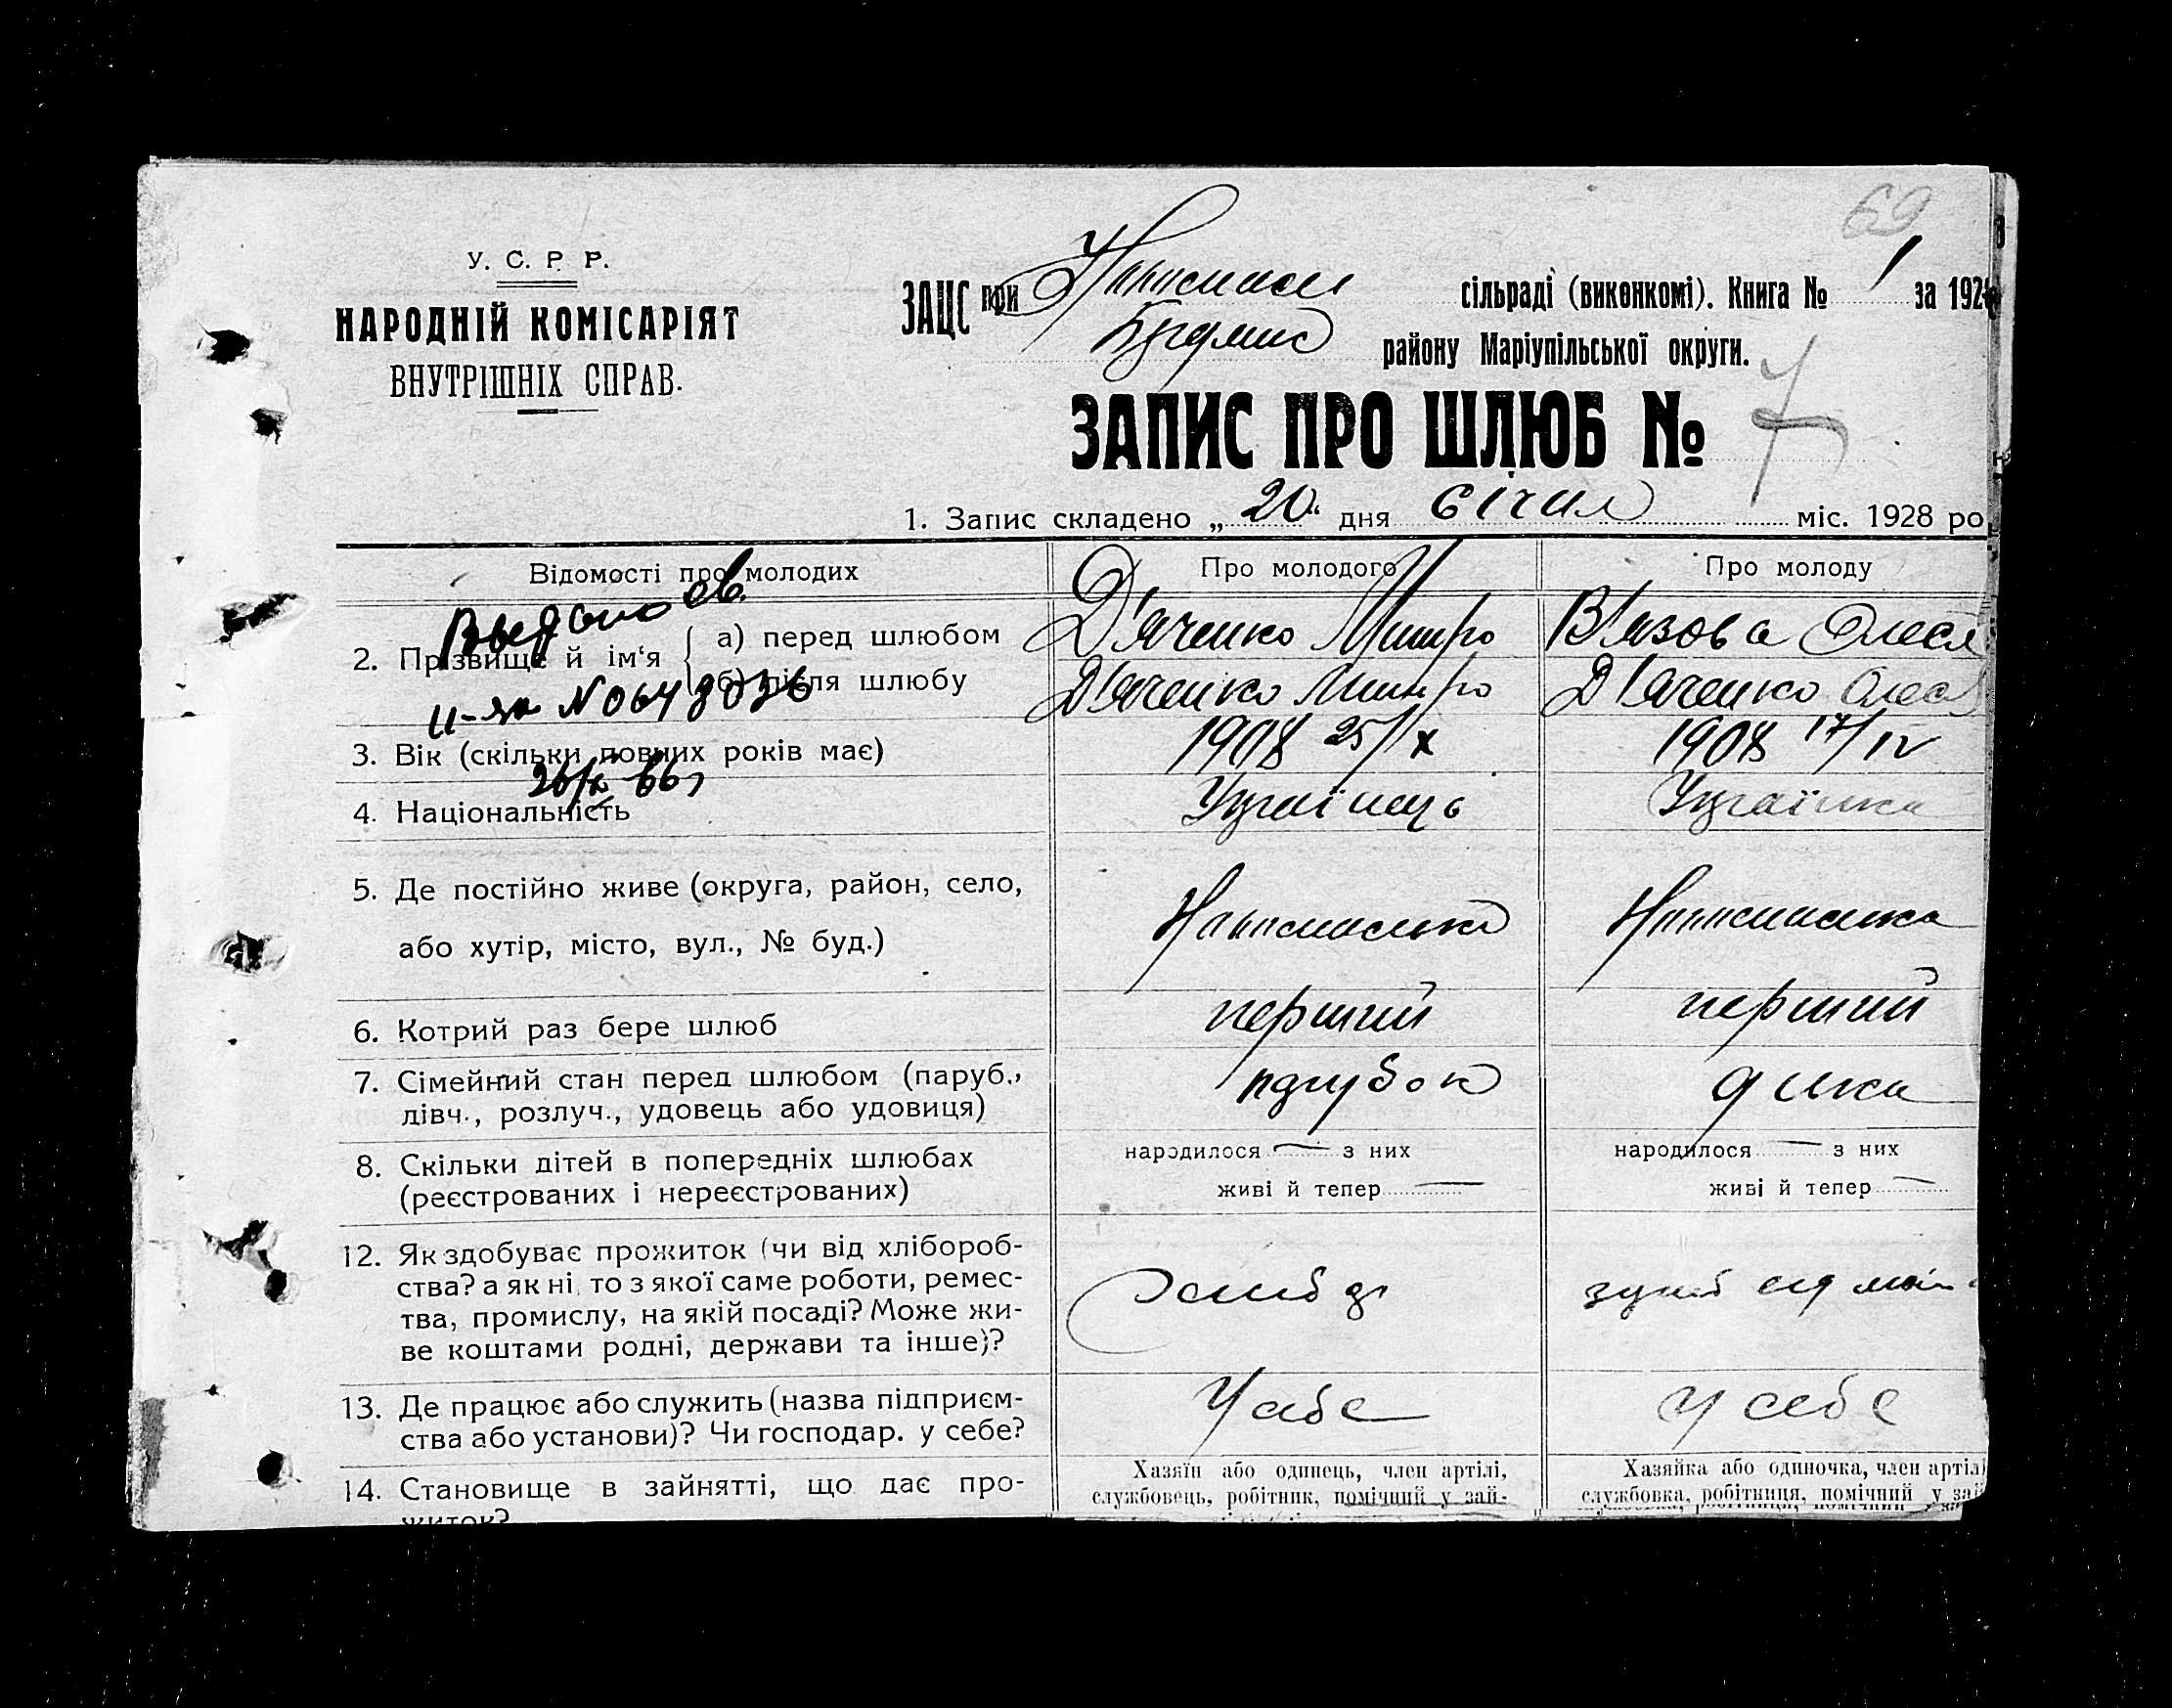 69
У. С. Р. Р.
НАРОДНІЙ КОМІСАРІЯТ
ВНУТРІШНІХ СПРАВ.
ЗАЦС при сільраді (виконкомі). Книга № 1 за 192
району Маріупільської округи.
ЗАПИС ПРО ШЛЮБ № 7
1. Запис складено „ 20 “ дня січня міс. 1928 ро
Відомості про молодих Про молодого Про молоду
2. Прізвище й ім‘я
а) перед шлюбом Д'яченко В'язова Олеся
б) після шлюбу Д'яченко Д'яченко Олеся
3. Вік (скільки повних років має) 1908 25/X 1908 17/IV
4. Національність Українець Українка
5. Де постійно живе (округа, район, село,
або хутір, місто, вул., № буд.)
6. Котрий раз бере шлюб перший перший
7. Сімейний стан перед шлюбом (паруб.,
дівч., розлуч., удовець або удовиця) парубок
8. Скільки дітей в попередніх шлюбах
(реєстрованих і нереєстрованих)
народилося — з них народилося — з них
живі й тепер — живі й тепер —
12. Як здобуває прожиток (чи від хлібороб-
ства? а як ні, то з якої саме роботи, ремес-
тва, промислу, на якій посаді? Може жи-
ве коштами родні, держави та інше)?
13. Де працює або служить (назва підприєм-
ства або установи)? Чи господар. у себе?
У себе у себе
14. Становище в зайнятті, що дає про-
житок?
Хазяїн або одинець, член артілі,
службовець, робітник, помічний у зай-
Хазяйка або одиночка, член артіл
службовка, робітниця, помічний у зай